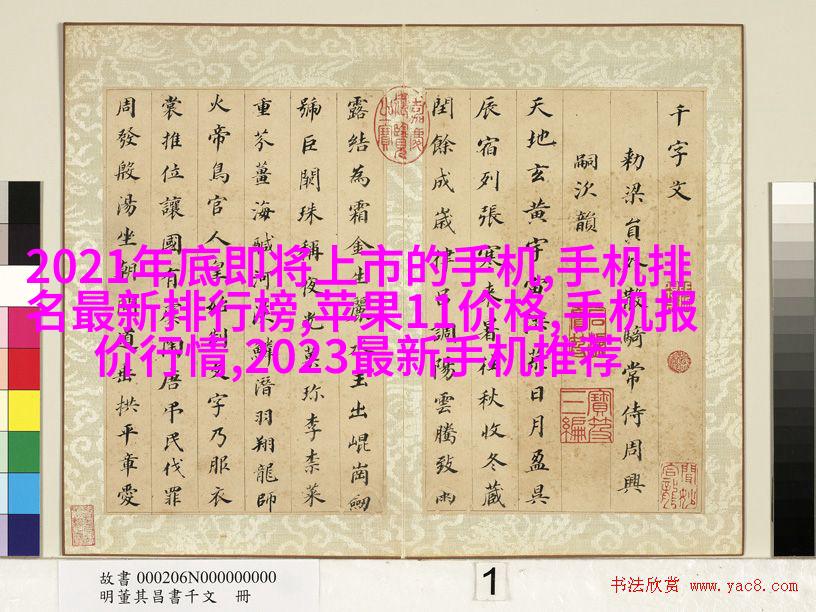 2021年底即将上市的手机,手机排
名最新排行榜,苹果11价格,手机报
价行情,2023最新手机推荐
千字文
勅梁員外散騎常侍周興
嗣次韻
天地玄黃宇宙洪荒日月盈昃
辰宿列張寒来暑往秋收冬藏
閏餘成歲律呂調陽雲騰致雨
露結為霜金生麗水玉出崐崗劒
號巨闕珠稱夜光菓珍李柰菜
重芥薑海鹹河淡鱗潛羽翔龍師
火帝鳥官人皇始制文字乃服衣
裳推位讓國有虞陶唐弔民伐罪
周發殷湯坐朝問道垂拱平章愛
寶笈三編
故書 000206N000000000
明董其昌書千文 冊
1
书法欣赏 www.yac8.com